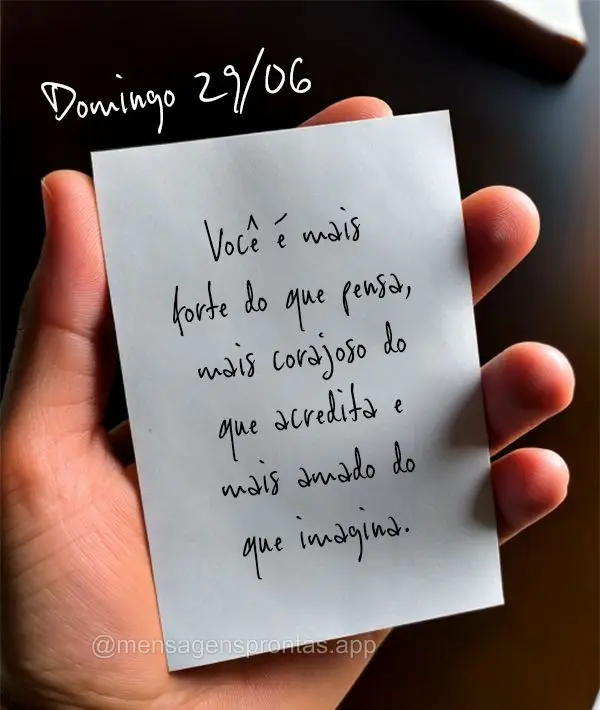 Domingo 29/06
Você é mais
forte do que pensa,
mais corajoso do
que acredita e
mais amado do
que imagina.
@mensagensprontas.app